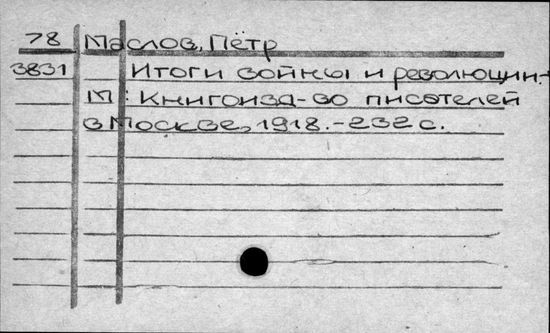 78 Маслов, Пётр
3831 Итоги войны и революции.-
М: Книгоизд-во писателей
в Москве, 1918.-232 с.